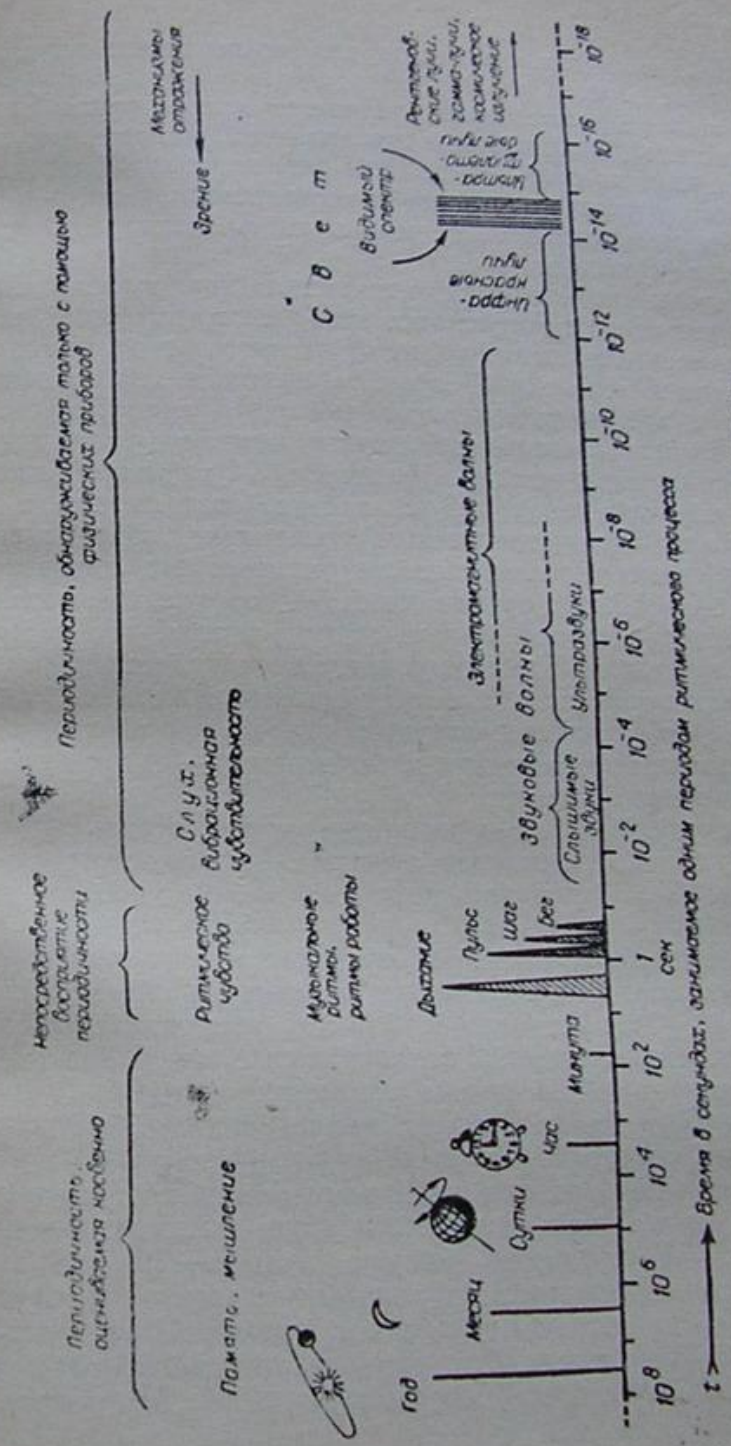 Периодичность,
оцениваемая косвенно
Непосредственное
восприятие
периодичности
Периодичность, обнаруживаемая только с помощью
физических приборов
Память, мышление
Ритмическое
чувство
Слух,
вибрационная
чувствительность
Зрение
Механизмы
отражения
Музыкальные
ритмы,
ритмы работы
Свет
Год
Месяц
Сутки
Час
Минута
Дыхание
Пульс
Шаг
Бег
Звуковые волны
Слышимые
звуки
Ультразвуки
Электромагнитные волны
Инфра-
красные
лучи
Видимый
спектр
Ультра-
фиолето-
вые лучи
Рентгенов-
ские лучи,
гамма-лучи,
космическое
излучение
10⁸
10⁶
10⁴
10²
1
сек
10⁻²
10⁻⁴
10⁻⁶
10⁻⁸
10⁻¹⁰
10⁻¹²
10⁻¹⁴
10⁻¹⁶
10⁻¹⁸
Время в секундах, занимаемое одним периодом ритмического процесса